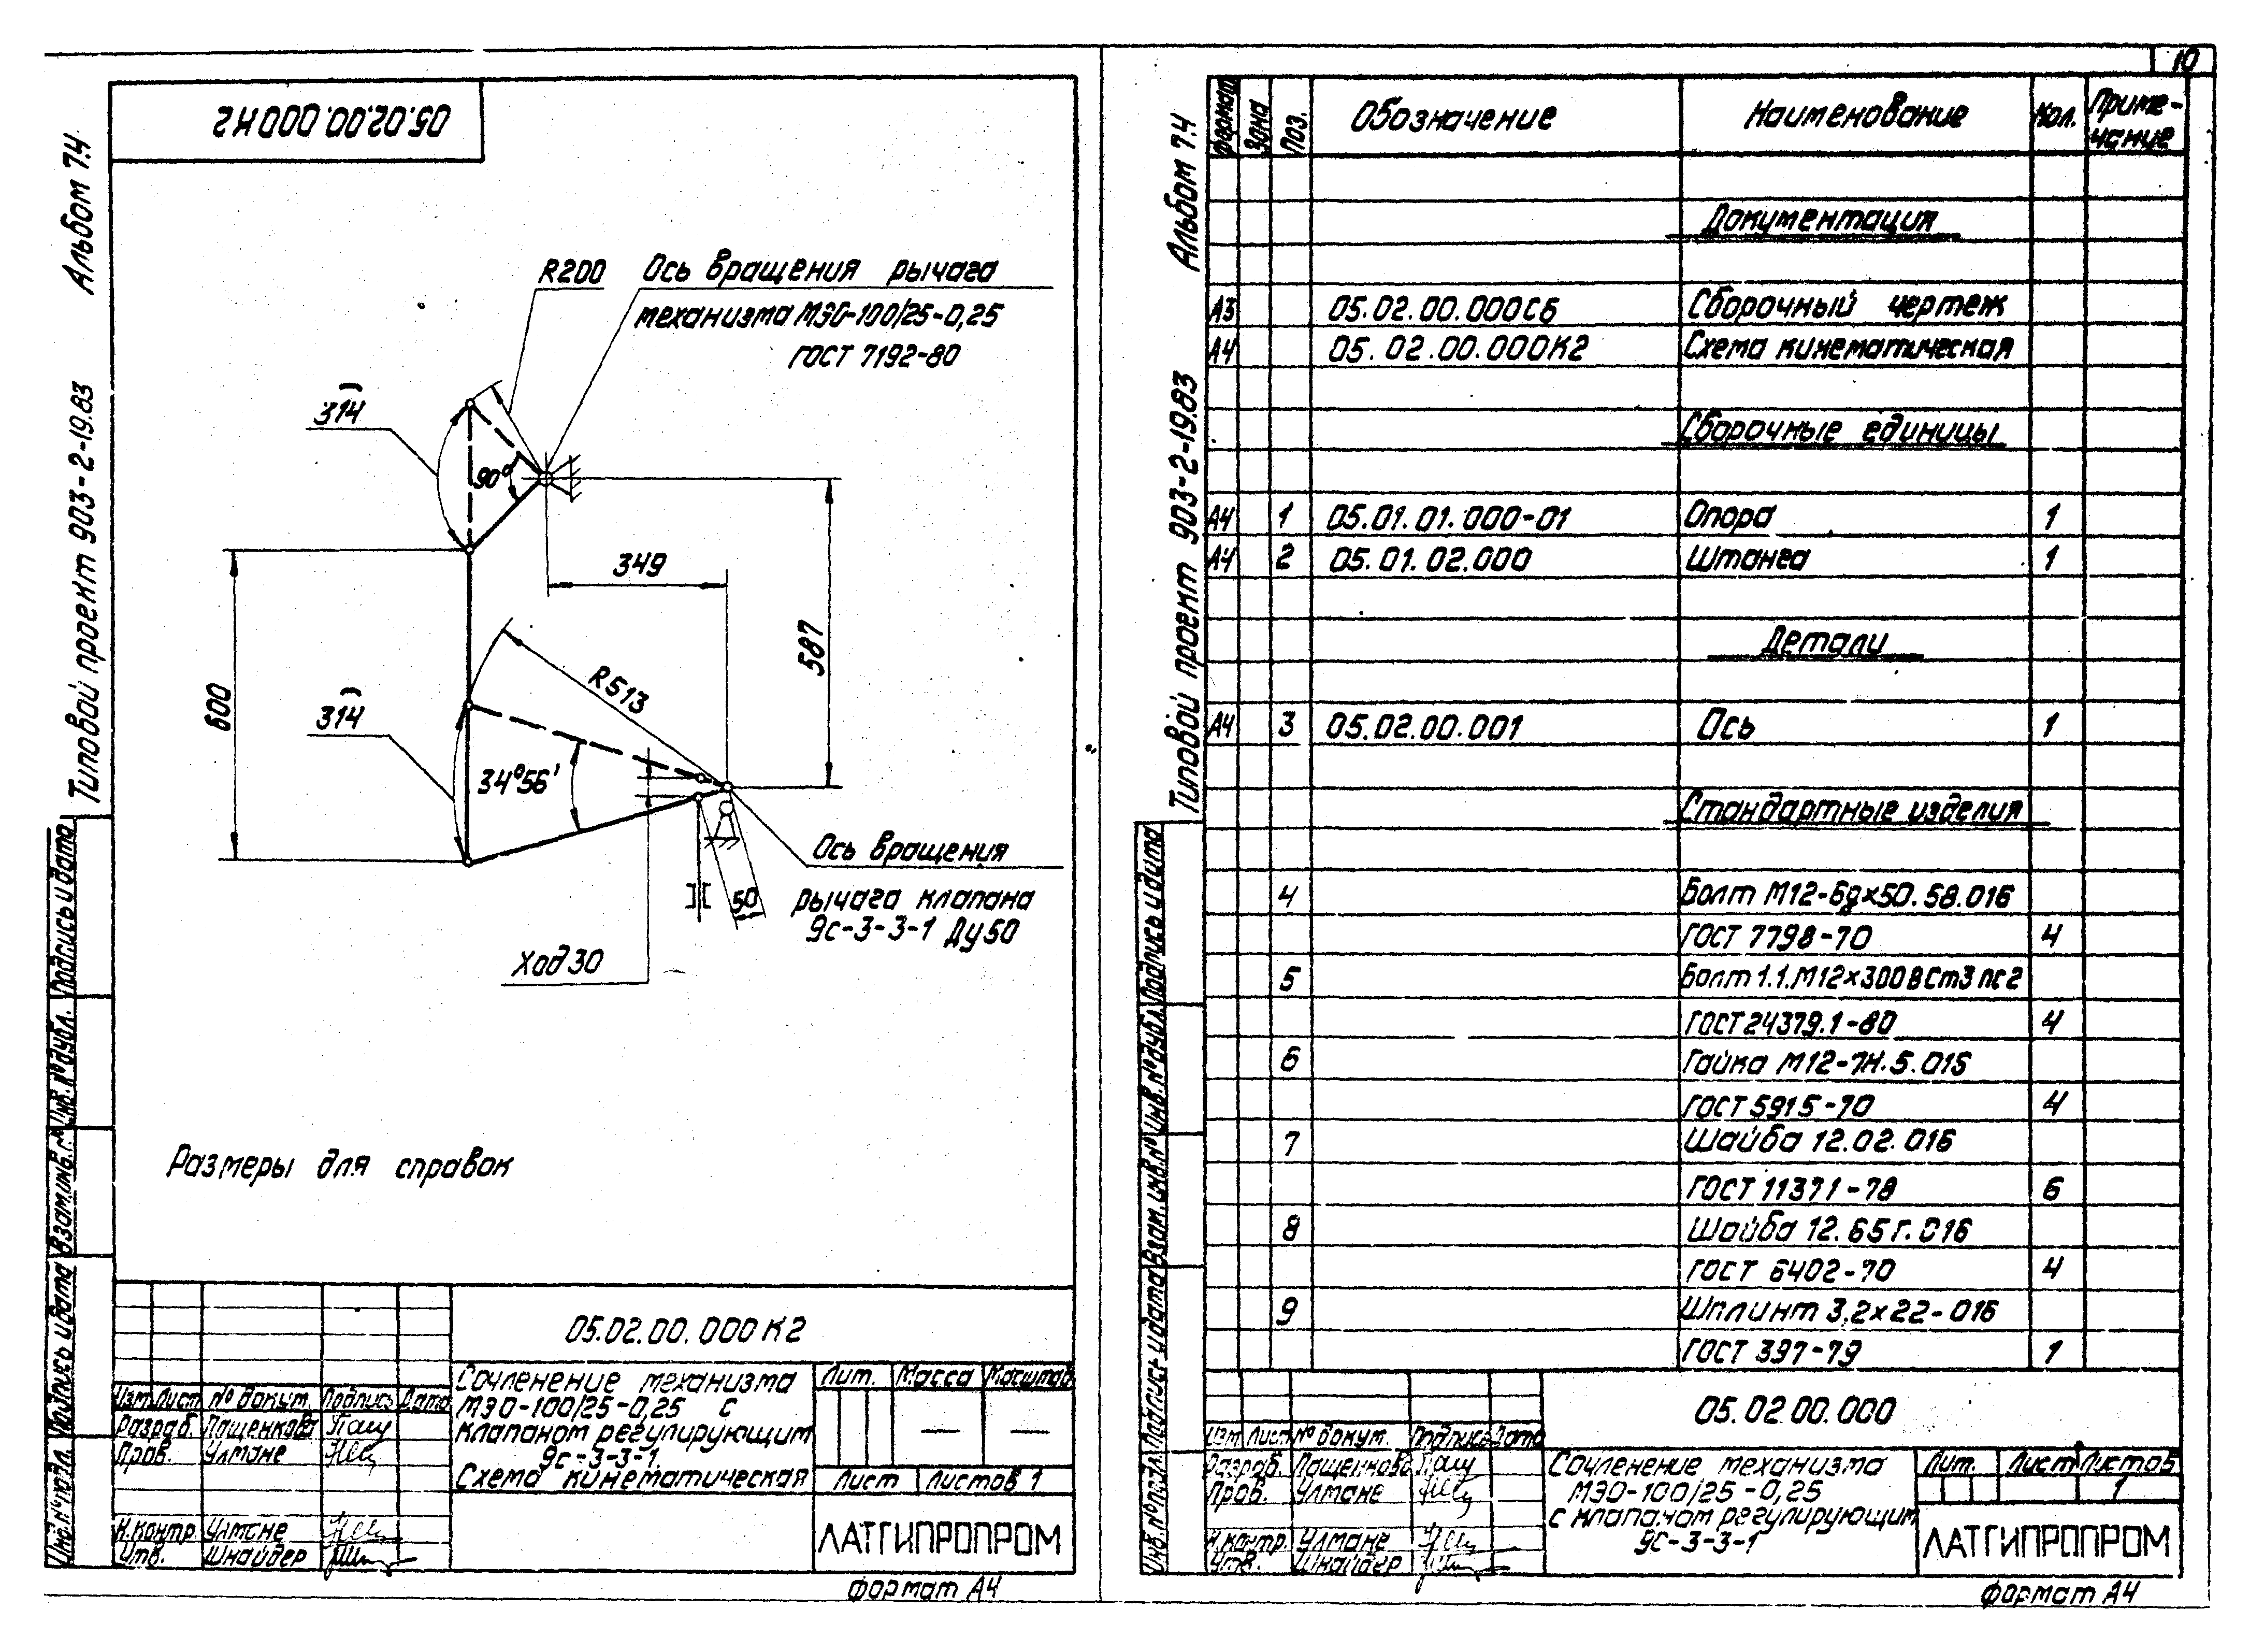 10
05.02.00.000К2
Альбом 7.4
Типовой проект 903-2-19.83
R200
Ось вращения рычага
механизма МЭО-100/25-0,25
ГОСТ 7192-80
314
90°
349
587
600
R513
314
34°56'
Ось вращения
рычага клапана
9с-3-3-1 Ду50
50
Ход 30
Размеры для справок
Подпись и дата
Инв.№ дубл.
Взам.инв.№
Подпись и дата
Инв.№ подл.
05.02.00.000К2
Сочленение механизма
МЭО-100/25-0,25 с
клапаном регулирующим
9с-3-3-1.
Схема кинематическая
Лит. Масса Масштаб
— —
Лист Листов 1
ЛАТГИПРОПРОМ
Изм Лист № докум. Подпись Дата
Разраб. Пащенкова
Пров. Улмане
Н.контр. Улмане
Утв. Шнайдер
формат А4
Альбом 7.4
Типовой проект 903-2-19.83
Формат Зона Поз. Обозначение Наименование Кол. Приме-
чание
Документация
А3 05.02.00.000СБ Сборочный чертеж
А4 05.02.00.000К2 Схема кинематическая
Сборочные единицы
А4 1 05.01.01.000-01 Опора 1
А4 2 05.01.02.000 Штанга 1
Детали
А4 3 05.02.00.001 Ось 1
Стандартные изделия
4 Болт М12-6gх50.58.016
ГОСТ 7798-70 4
5 Болт 1.1.М12х300ВСт3пс2
ГОСТ 24379.1-80 4
6 Гайка М12-7Н.5.016
ГОСТ 5915-70 4
7 Шайба 12.02.016
ГОСТ 11371-78 6
8 Шайба 12.65Г.016
ГОСТ 6402-70 4
9 Шплинт 3,2х22-016
ГОСТ 397-79 1
Подпись и дата
Инв.№ дубл.
Взам.инв.№
Подпись и дата
Инв.№ подл.
05.02.00.000
Изм Лист № докум. Подпись Дата
Разраб. Пащенкова
Пров. Улмане
Н.контр. Улмане
Утв. Шнайдер
Сочленение механизма
МЭО-100/25-0,25
с клапаном регулирующим
9с-3-3-1
Лит. Лист Листов
1
ЛАТГИПРОПРОМ
формат А4